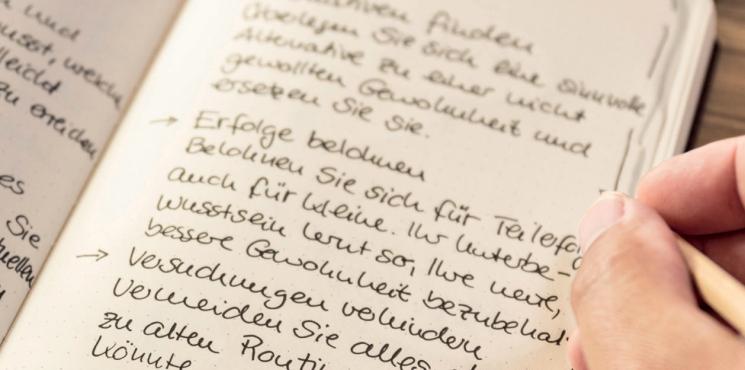 und
usst, welch
lleicht
zu erreichen
es
Sie
tuellen
ativen finden
Überlegen Sie sich eine sinnvolle
Alternative zu einer nicht
gewollten Gewohnheit und
ersetzen Sie sie.
→ Erfolge belohnen
Belohnen Sie sich für Teilerfo
auch für kleine. Ihr Unterbe-
wusstsein lernt so, Ihre neue,
bessere Gewohnheit beizubehal
→ Versuchungen verhindern
Vermeiden Sie alles
zu alten Routi
könnte